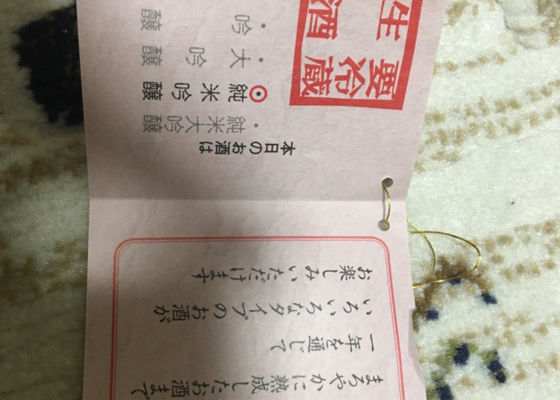 まろやかに熟成したお酒まで
一年を通じて
いろいろなタイプのお酒が
お楽しみいただけます
本日のお酒は
・純米大吟醸
・純米吟醸
・大吟醸
・吟醸
要冷蔵
生酒